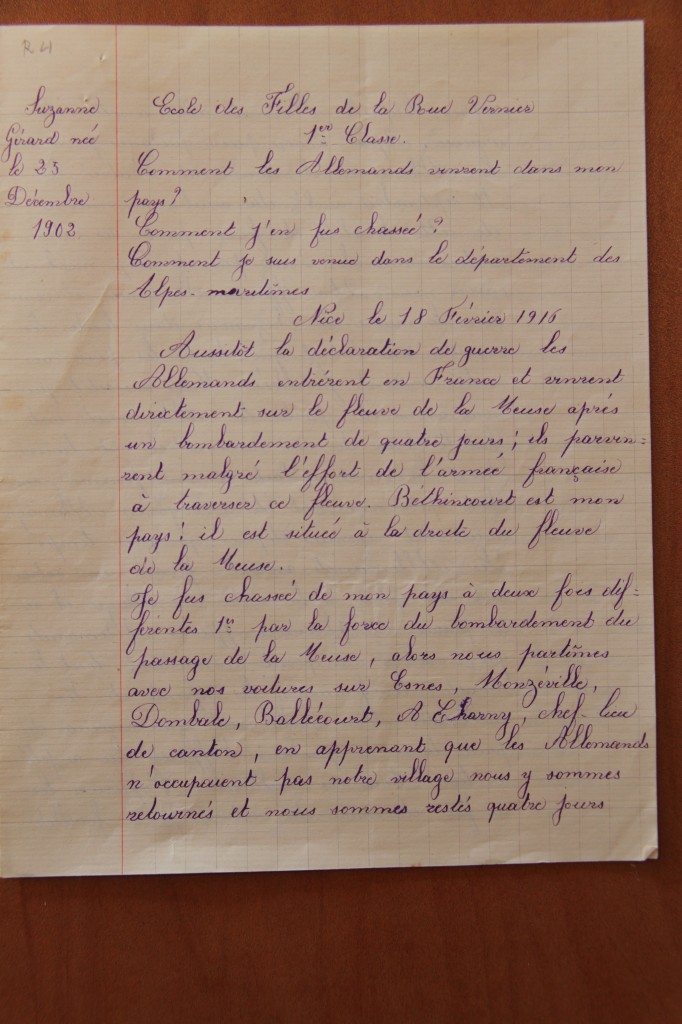 R 41
Suzanne
Gérard née
le 23
Décembre
1902
Ecole des Filles de la Rue Vernier
1ère Classe.
Comment les Allemands vinrent dans mon
pays ?
Comment j'en fus chasseé ?
Comment je suis venue dans le département des
Alpes-maritîmes
Nice le 18 Février 1916
Aussitôt la déclaration de guerre les
Allemands entrérent en France et vinrent
directement sur le fleuve de la Meuse aprés
un bombardement de quatre jours ; ils parvin=
rent malgré l'effort de l'armeé française
à traverser ce fleuve. Béthincourt est mon
pays ; il est situé à la droite du fleuve
de la Meuse.
Je fus chasseé de mon pays à deux fois dif=
férentes 1er par la force du bombardement du
passage de la Meuse, alors nous partîmes
avec nos voitures sur Esnes, Monzéville,
Dombale, Ballécourt, A Charny, chef-lieu
de canton, en apprenant que les Allemands
n'occupaient pas notre village nous y sommes
retournés et nous sommes restés quatre jours